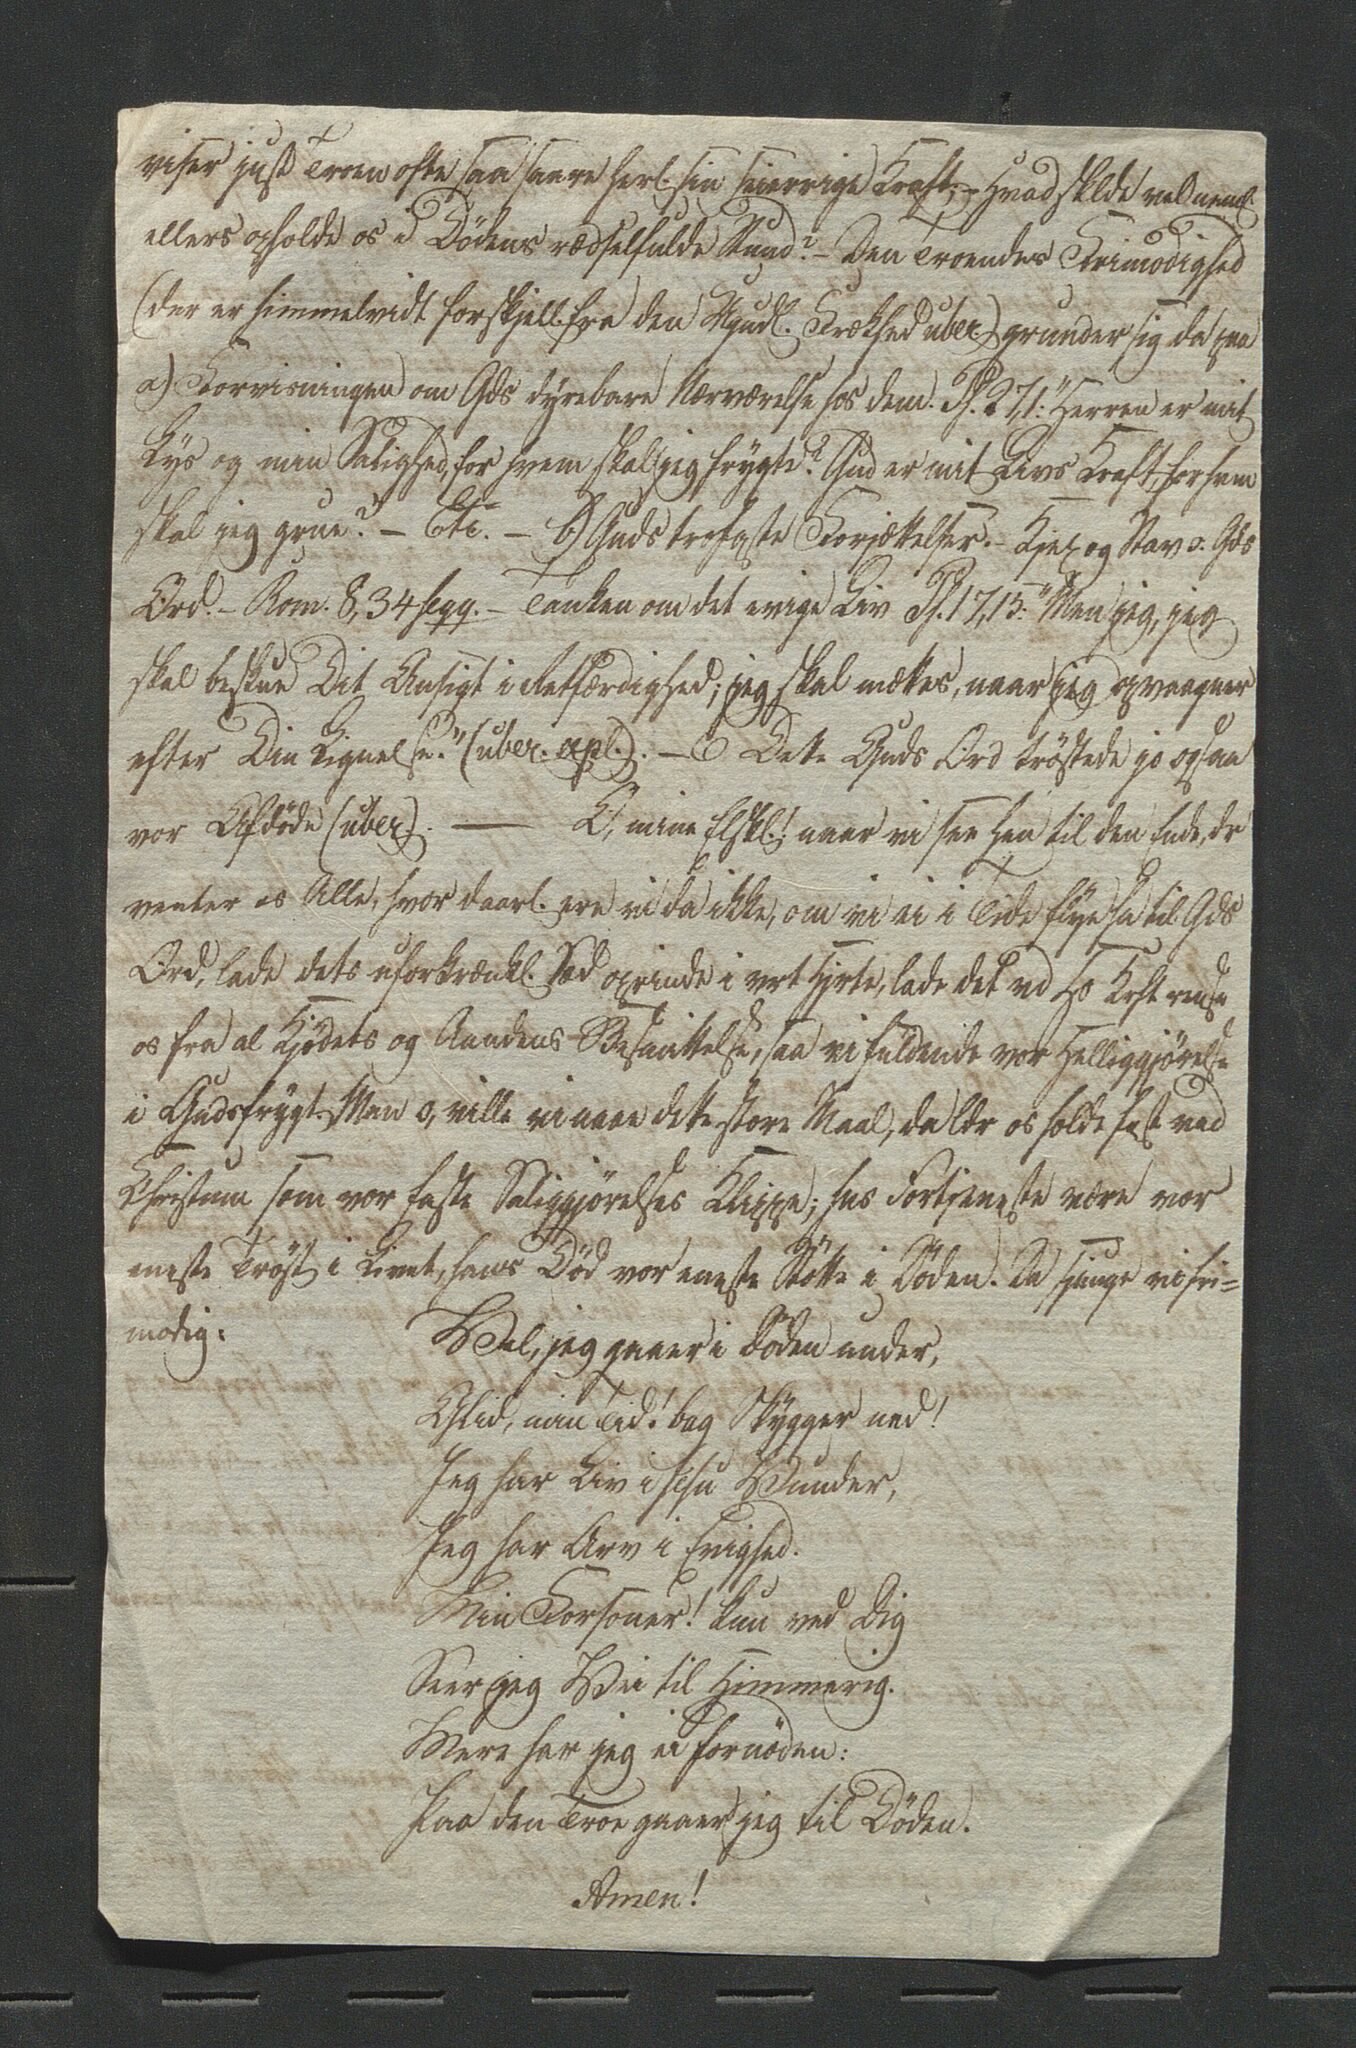 viser just Troen ofte saa saare herl. sin seierrige Kraft; – Hvad skulde vel neml.
ellers opholde os i Dödens rædselfulde Stund? – Den Troendes Frimodighed
(der er himmelvidt forskjell. fra den Ugudl. Frækhed uber.) grunder sig da paa
a) Forvisningen om Gds dyrebare Nærværelse hos dem. Ps. 27,1: "Herren er mit
Lys og min Salighed, for hvem skal jeg frygte? Gud er mit Livs Kraft, for hvem
skal jeg grue? – Etc. – b) Guds trofaste Forjættelser. – Kjep og Stav o: Gds
Ord. – Rom. 8,34 seqq. – Tanken om det evige Liv Ps. 17,15. "Men jeg, jeg
skal beskue Dit Ansigt i Retfærdighed; jeg skal mættes, naar jeg opvaagner
efter Din Lignelse." (uber. apl.). – Dette Guds Ord tröstede jo ogsaa
vor Afdöde (uber). — O, mine Elskl.! naar vi see hen til den Ende, dr
venter os Alle, hvor daarl. ere vi da ikke, om vi ei i Tide flye hn til Gds
Ord, lade dets uforkrænkl. Sæd oprinde i vrt Hjrte, lade det vd Hs Krft rense
os fra al Kjödets og Aandens Besmittelse, saa vi fuldende vor Helliggjörelse
i Gudsfrygt. Men o, ville vi naae dette store Maal, da lder os holde fast ved
Christum som vor faste Saliggjörelses Klippe; hns Fortjeneste være vor
eneste Tröst i Livet, hans Död vor eneste Stötte i Döden. Da sjunge vi fri-
modig:
Wel, jeg gaaer i Döden under,
Glid, min Tid! bag Skygger ned!
Jeg har Liv i Jesu Wunder,
Jeg har Arv i Evighed.
Min Forsoner! kun ved Dig
Seer jeg Wei til Himmerig.
Mere har jeg ei fornöden:
Paa den Troe gaaer jeg til Döden.
Amen!